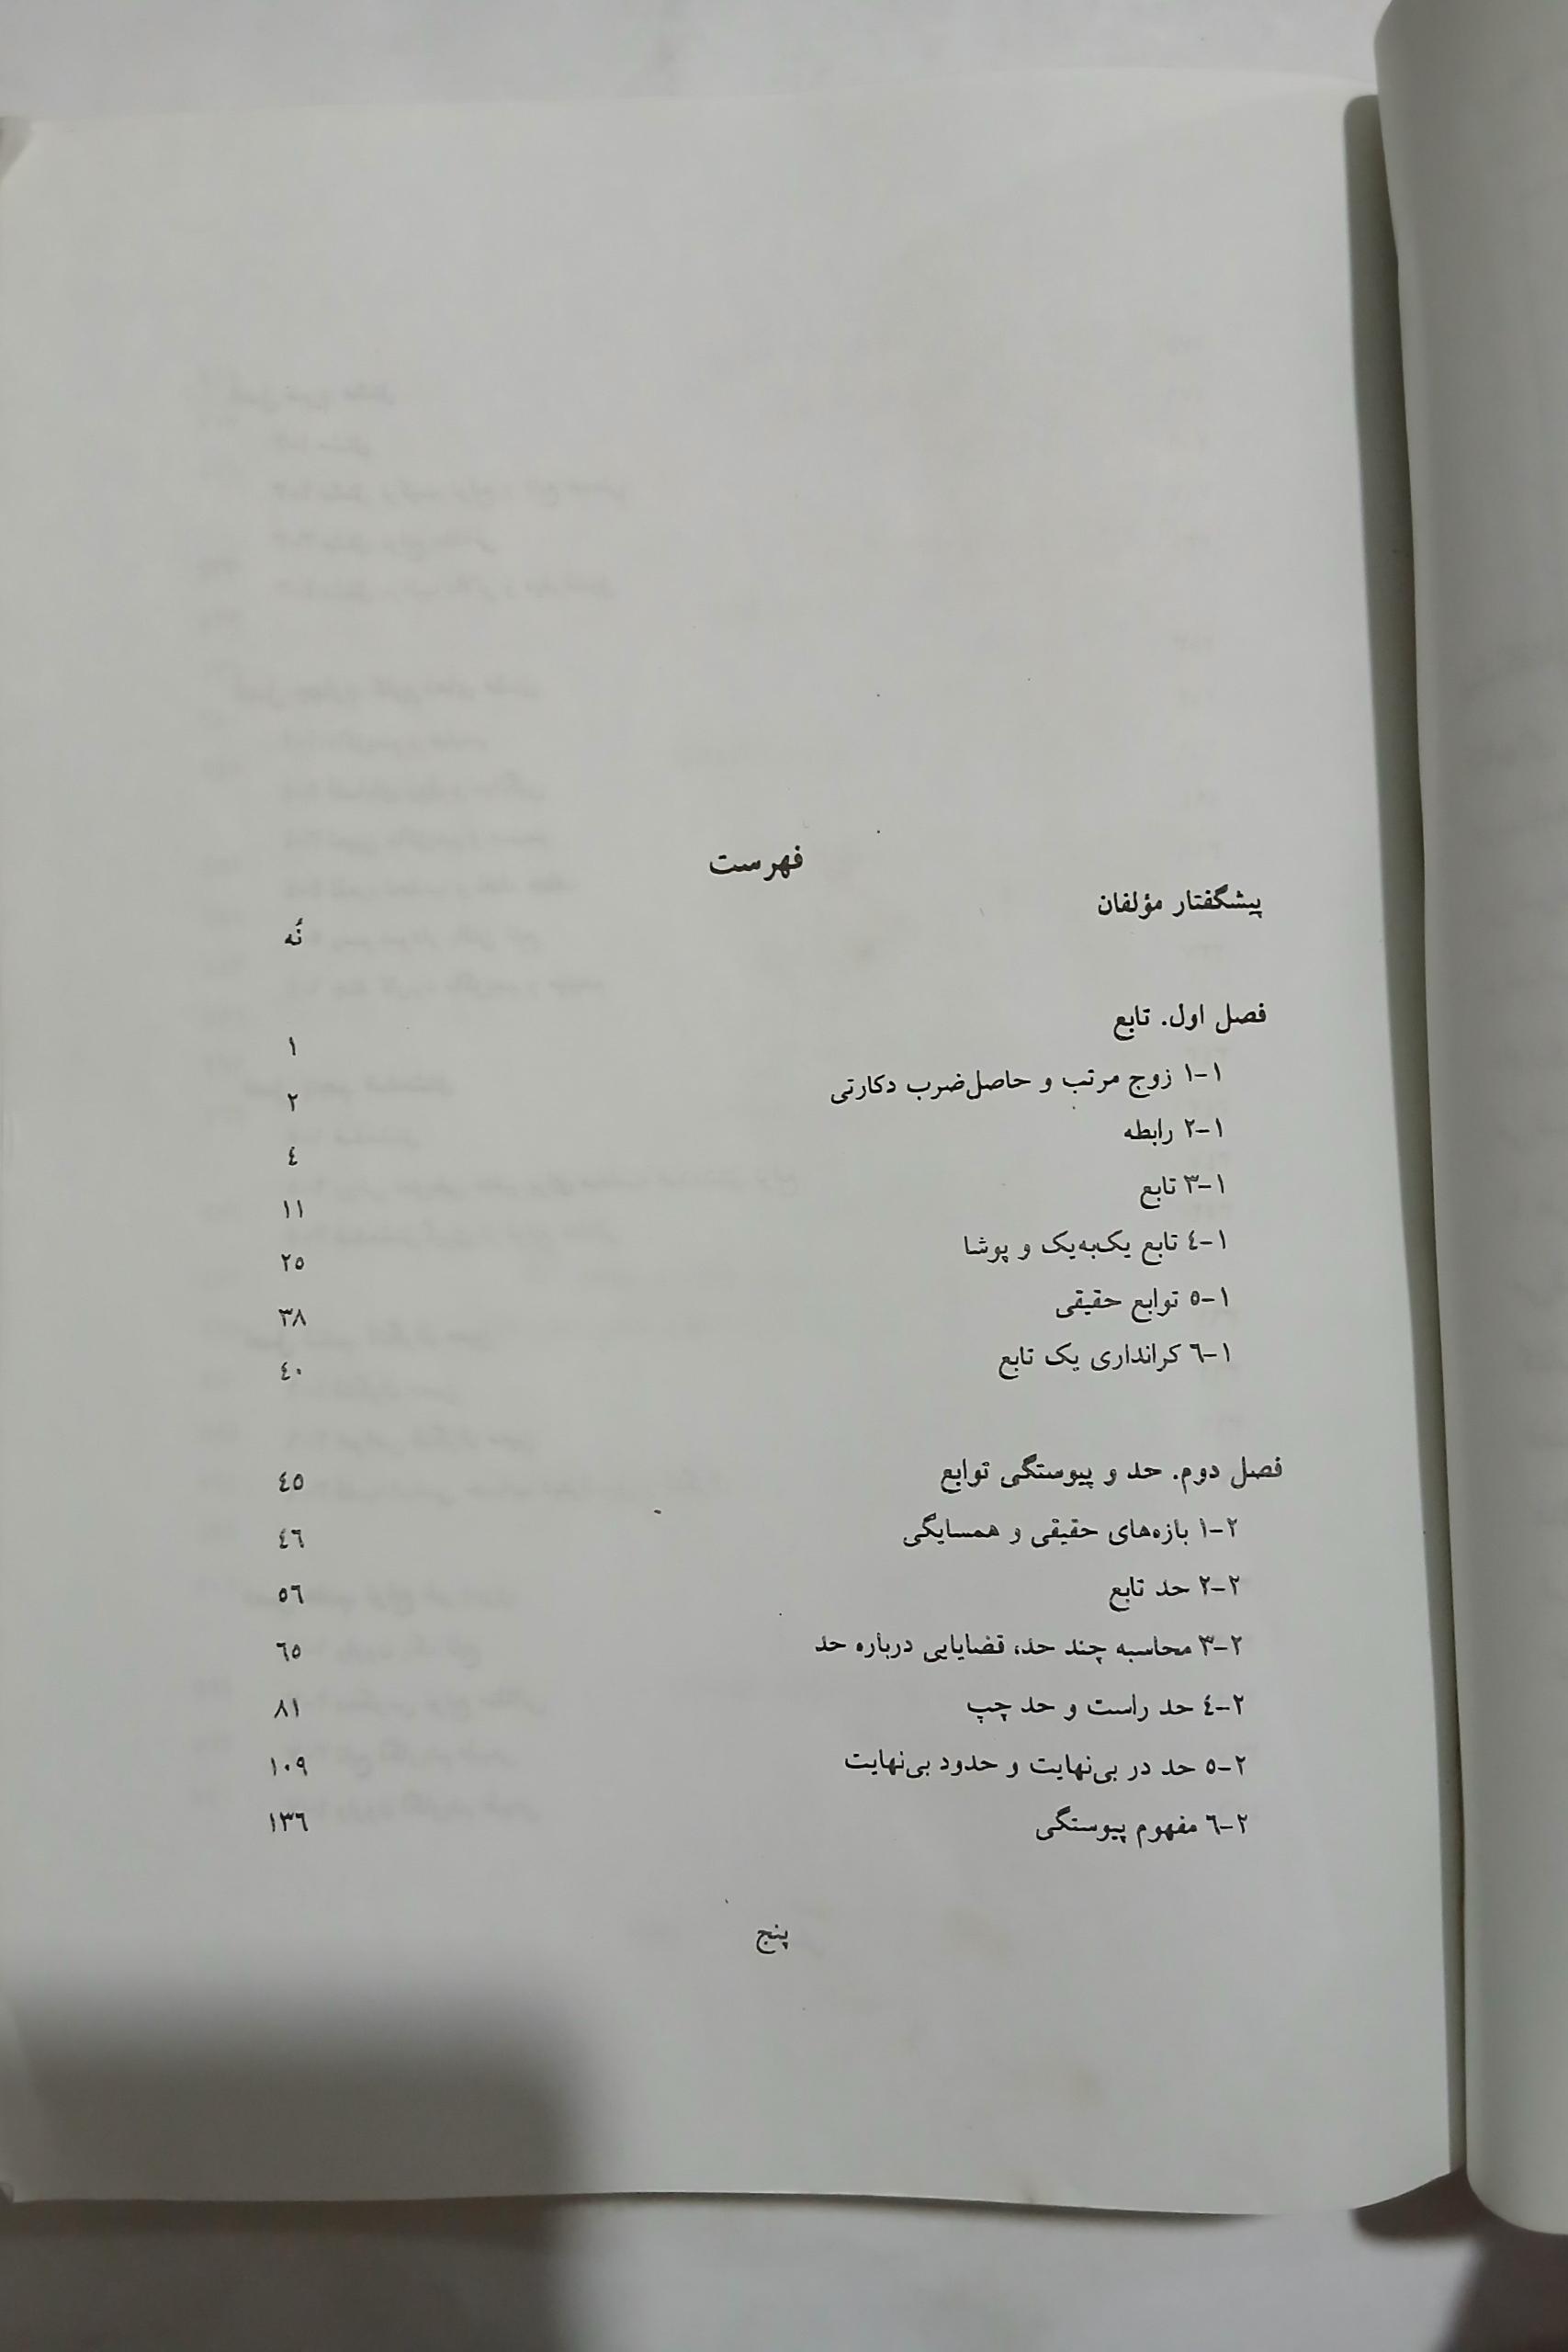 فهرست
پیشگفتار مؤلفان نُه
فصل اول. تابع ١
١-١ زوج مرتب و حاصل‌ضرب دکارتی ٢
١-٢ رابطه ٤
١-٣ تابع ١١
١-٤ تابع یک‌به‌یک و پوشا ٢٥
١-٥ توابع حقیقی ٣٨
١-٦ کرانداری یک تابع ٤٠
فصل دوم. حد و پیوستگی توابع ٤٥
٢-١ بازه‌های حقیقی و همسایگی ٤٦
٢-٢ حد تابع ٥٦
٢-٣ محاسبه چند حد، قضایایی درباره حد ٦٥
٢-٤ حد راست و حد چپ ٨١
٢-٥ حد در بی‌نهایت و حدود بی‌نهایت ١٠٩
٢-٦ مفهوم پیوستگی ١٣٦
پنج